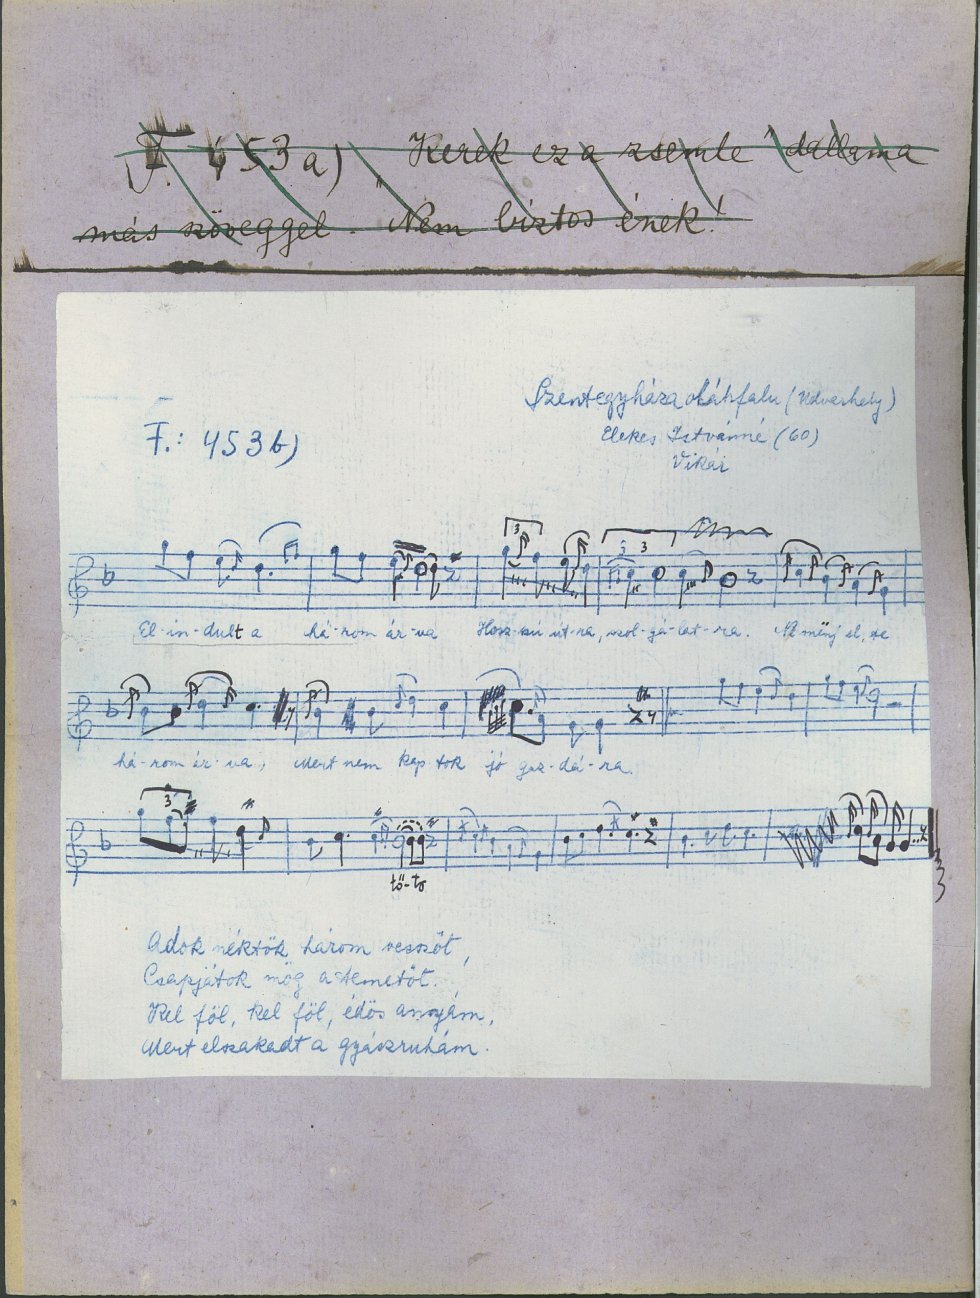 F. 453 a) „Kerek ez a zsemle" dallama
más szöveggel. Nem biztos ének!
Szentegyházasoláhfalu (Udvarhely)
F.: 453 b)
Elekes Istvánné (60)
Vikár
3
3 3
El-in-dult a há-rom ár-va Hosz-szú út-ra, szol-gá-lat-ra. Ne mënj el, te
há-rom ár-va, Mert nem kap tok jó gaz-dá-ra.
3
tő-tő
Adok néktök három vesszőt,
Csapjátok mög a temetőt.
Kel föl, kel föl, édös anyám,
Mert elszakadt a gyászruhám.